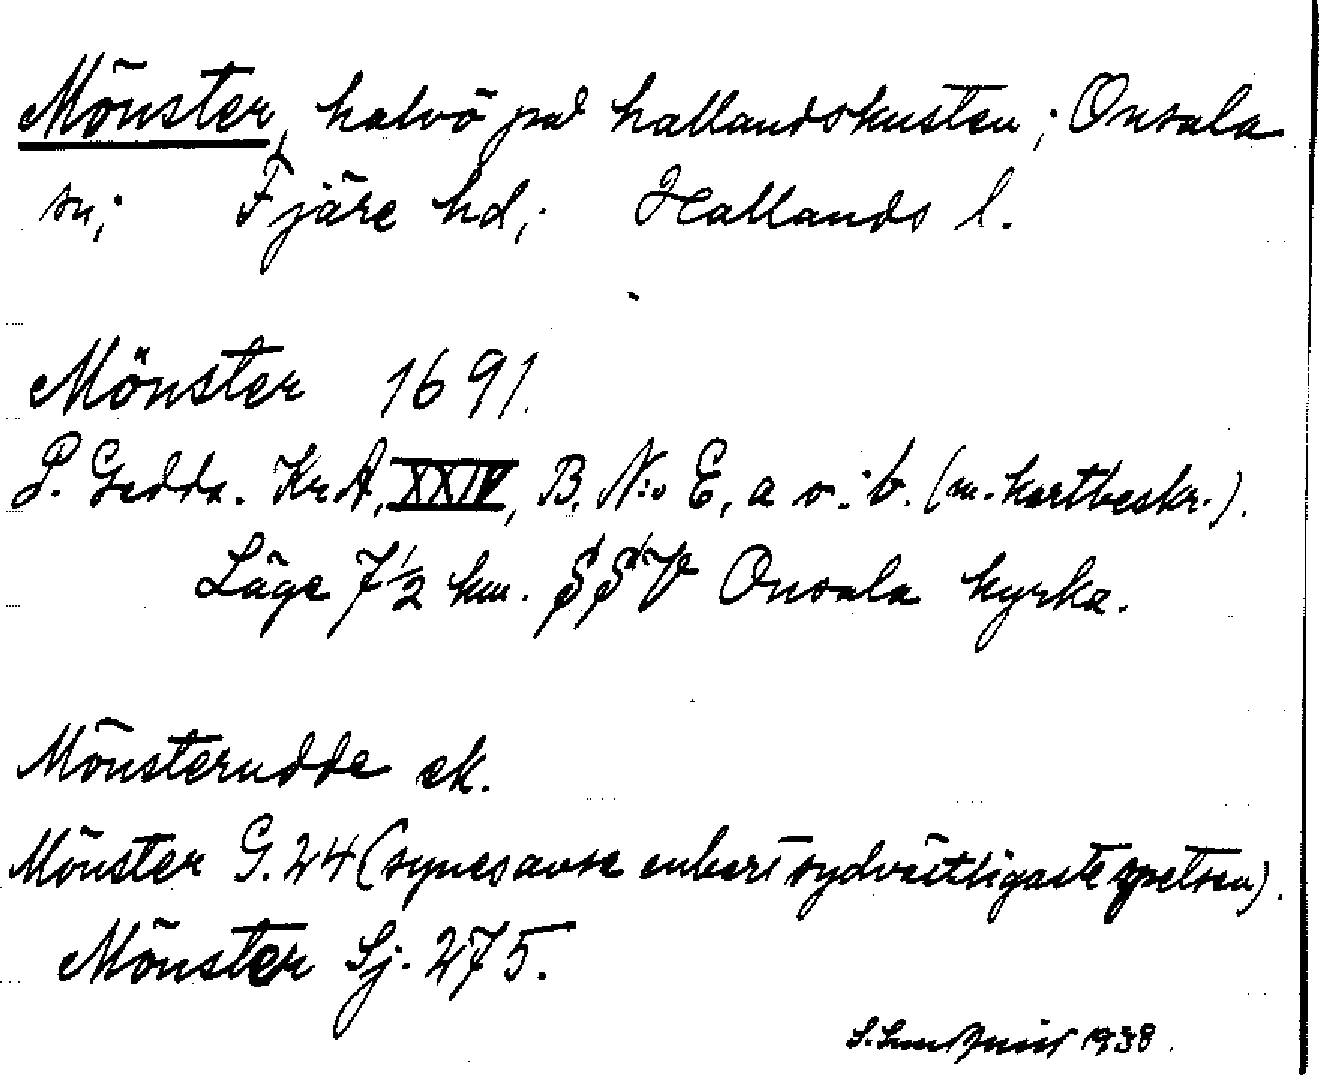 Mönster, halvö på hallandskusten; Onsala
sn; Fjäre hd; Hallands l.
Mönster 1691.
P. Gedda. Kr.A. XXIV, B. N:o E, a o. b. (m. kartbeskr.).
Läge 7 1/2 km. SSV Onsala kyrka.
Mönsterudde ek.
Mönster G. 24 (synes avse enbart sydvästligaste spetsen).
Mönster Sj. 275.
1938.